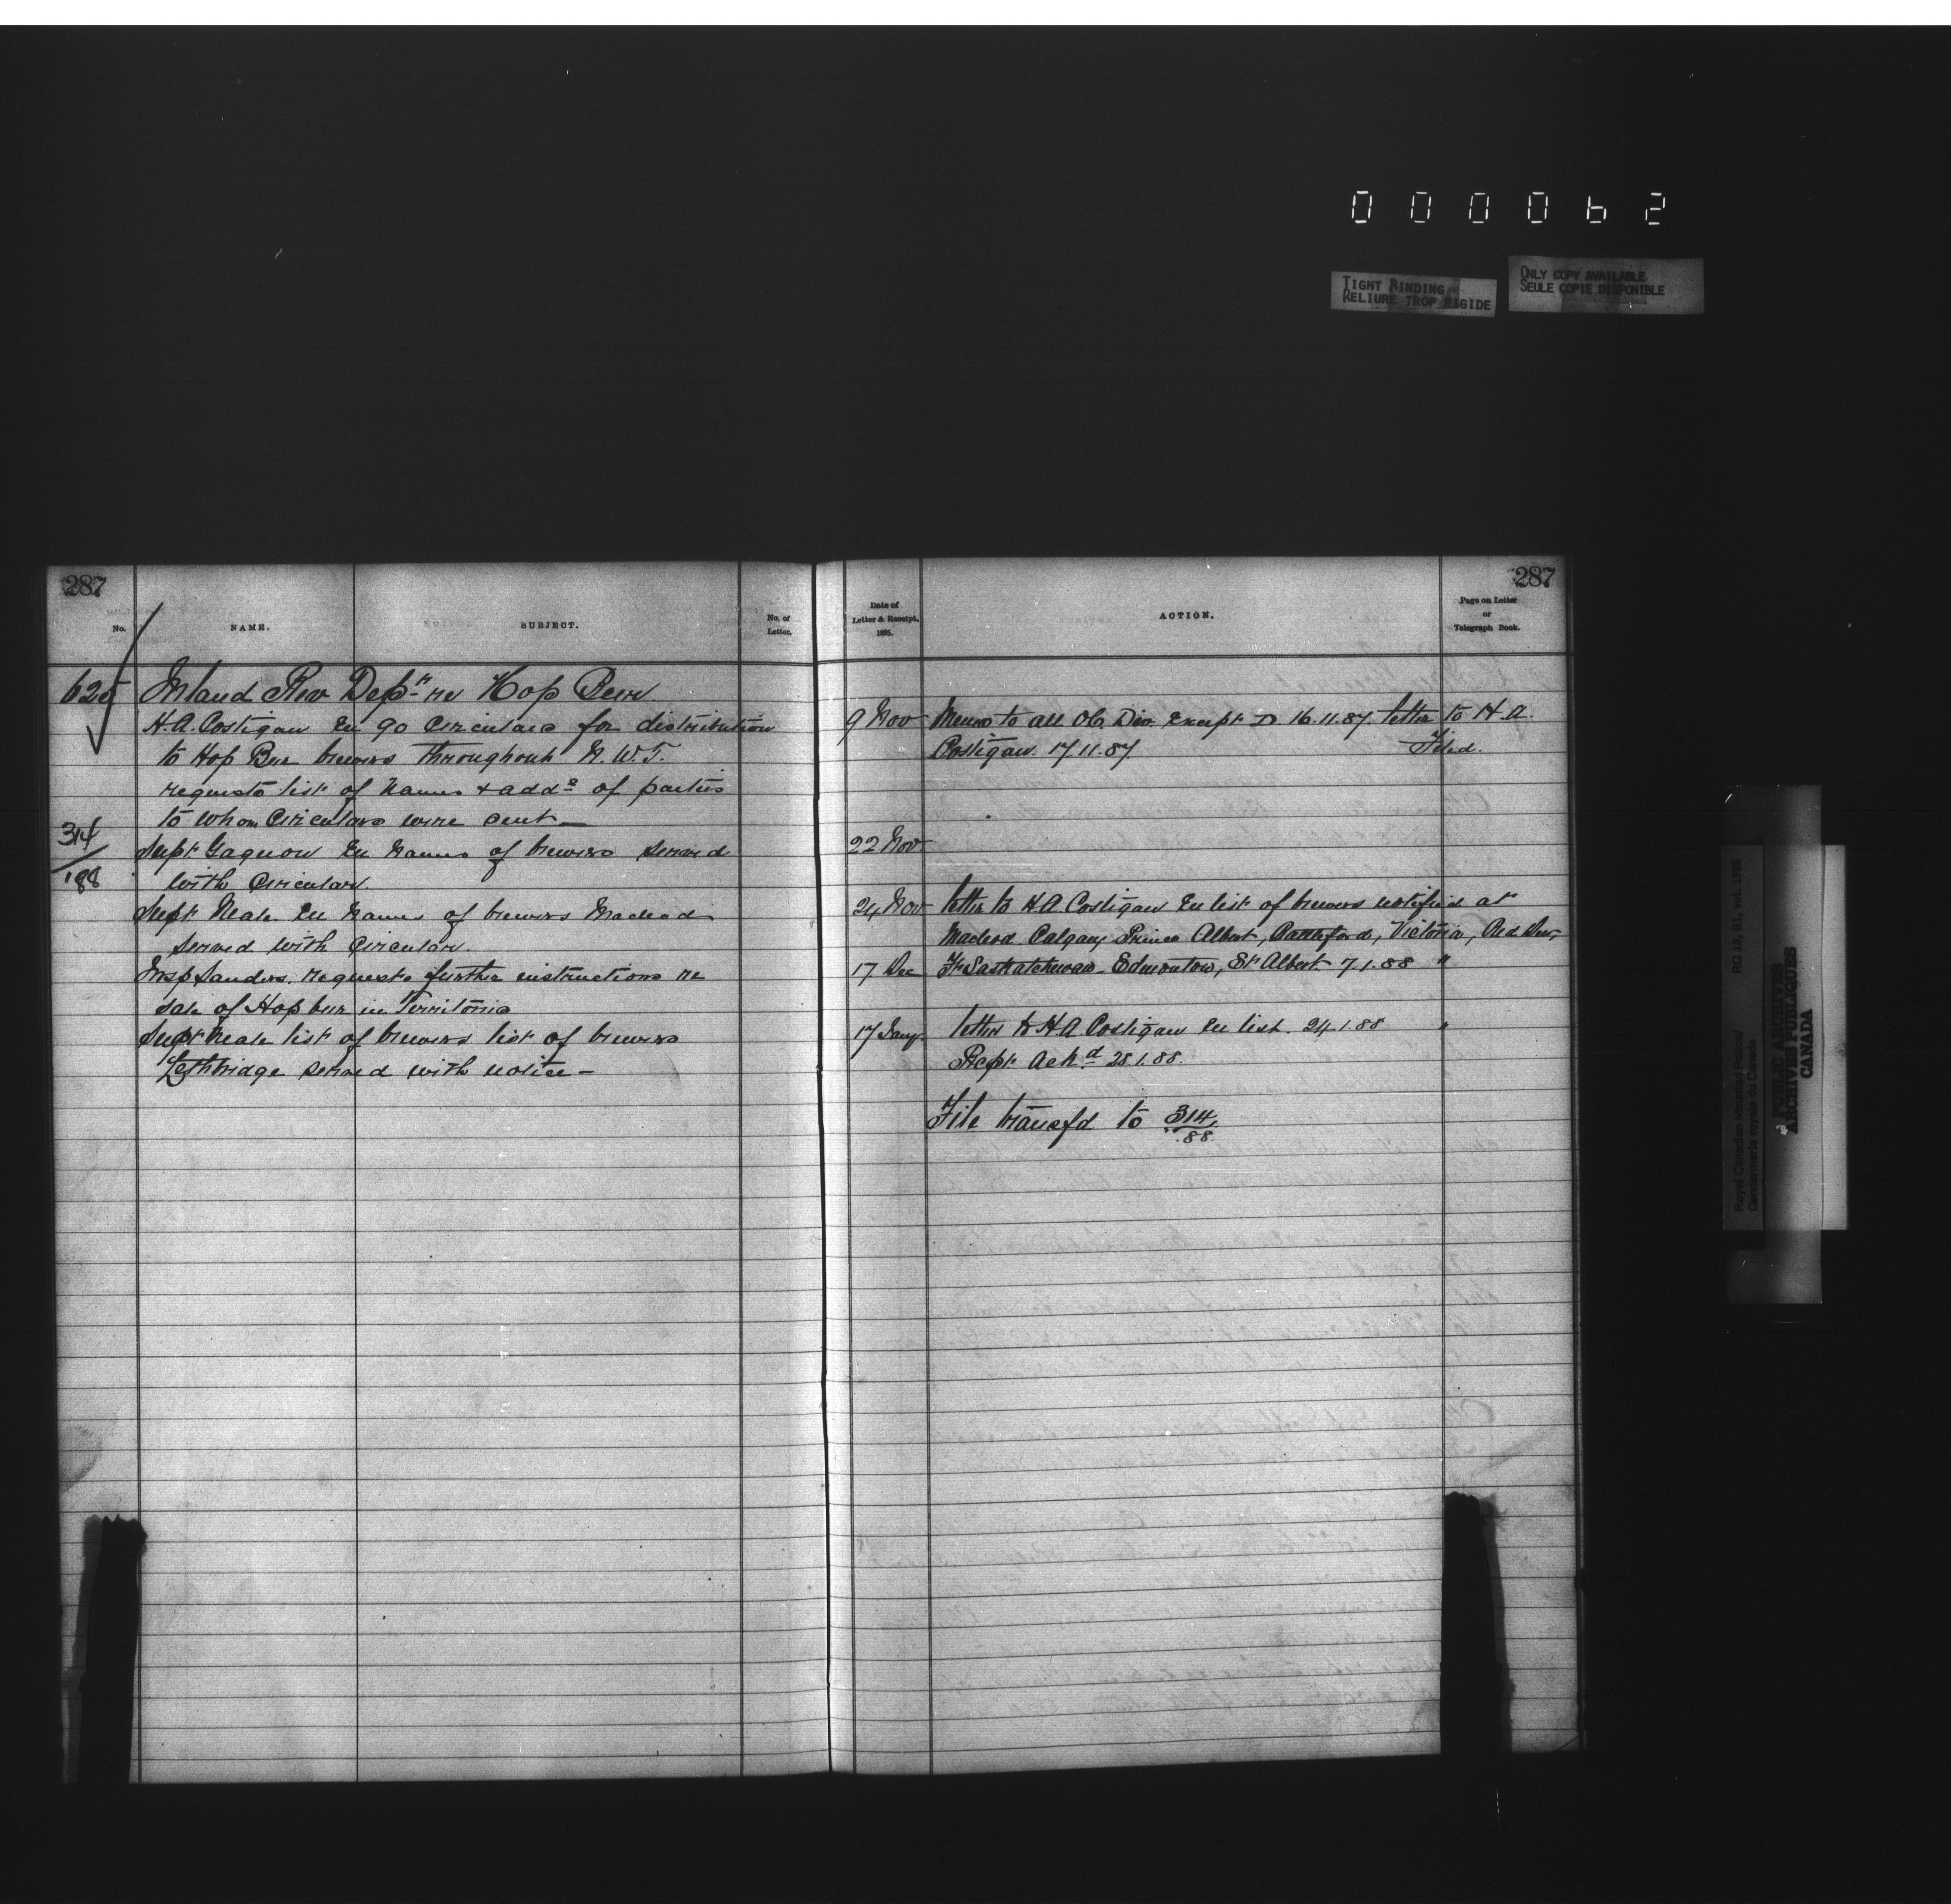 000062
TIGHT BINDING
RELIURE TROP RIGIDE
ONLY COPY AVAILABLE
SEULE COPIE DISPONIBLE
287
No.
NAME.
SUBJECT.
No. of
Letter.
625 Inland Rev Dept re Hop Beer
H.A. Costigan En 90 Circulars for distribution
to Hop Beer brewers throughout N.W.T.
requests list of names + adds of parties
to whom Circulars were sent —
314
/88
Supt Gagnon En names of brewers served
with Circulars.
Supt Neale En names of brewers Macleod
served with Circulars.
Insp Sanders. requests further instructions re
sale of Hop beer in Territories
Supt Neale list of brewers list of brewers
Lethbridge served with notice —
287
Date of
Letter & Receipt,
1885.
ACTION.
Page on Letter
or
Telegraph Book.
9 Nov Memo to all Ob. Div. Except D 16.11.87 letter to H.A.
Costigan. 17.11.87 Filed.
22 Nov
24 Nov letter to H.A. Costigan En list of brewers notified at
Macleod Calgary Prince Albert, Battleford, Victoria, Red Deer,
17 Dec Ft Saskatchewan Edmonton, St Albert 7.1.88 "
17 Jany letter to H.A. Costigan En list 24.1.88 "
Rcpt Ackd 28.1.88.
File transfd to 314
88
RG 18, B1, vol. 1988
Royal Canadian Mounted Police/
Gendarmerie royale du Canada
PUBLIC ARCHIVES
ARCHIVES PUBLIQUES
CANADA